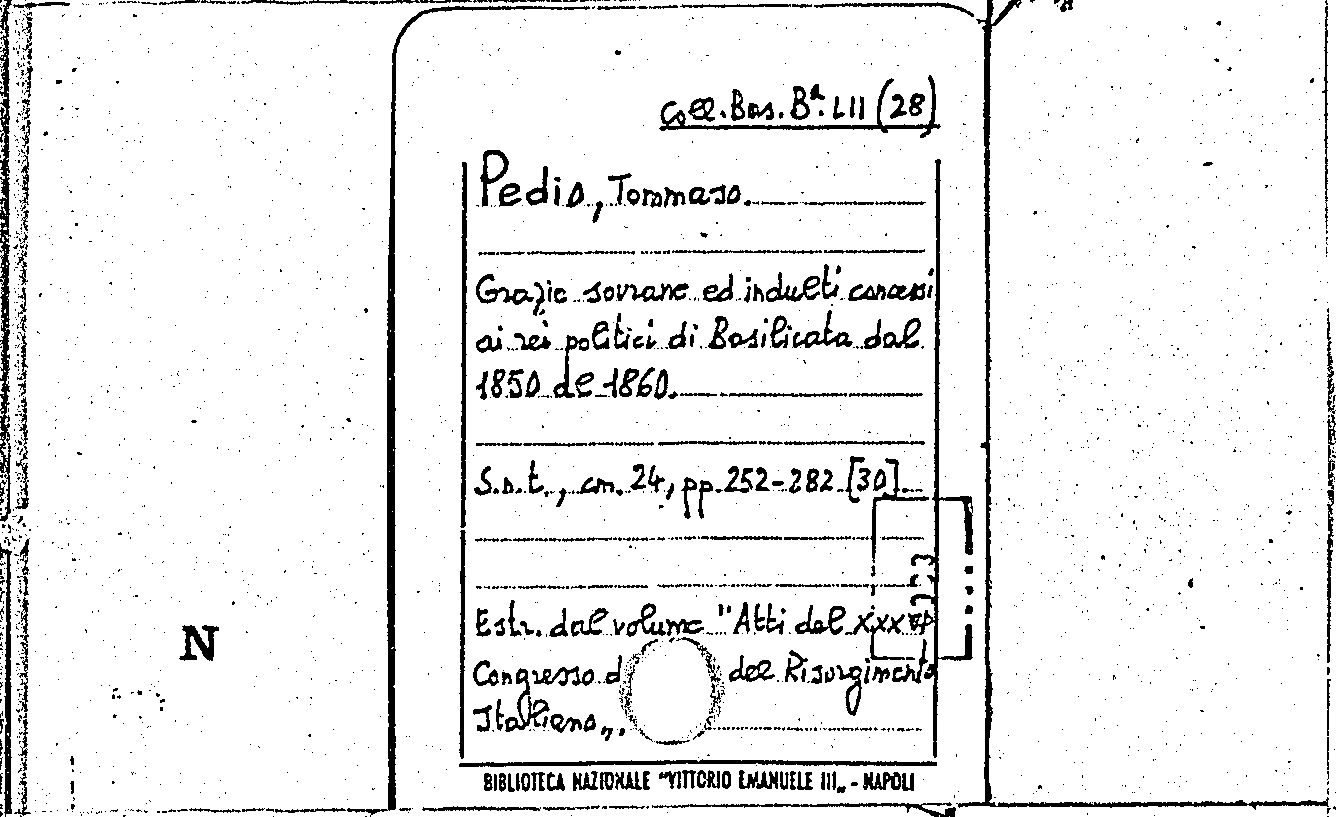 Coll. Bas. Bª. LII (28)
Pedio, Tommaso.
Grazie sovrane ed indulti concessi
ai rei politici di Basilicata dal
1850 al 1860.
S.n.t., cm. 24, pp. 252-282 [30]
Estr. dal volume "Atti del
Congresso d del Risorgimento
Italiano„.
N
BIBLIOTECA NAZIONALE "VITTORIO EMANUELE III„ - NAPOLI